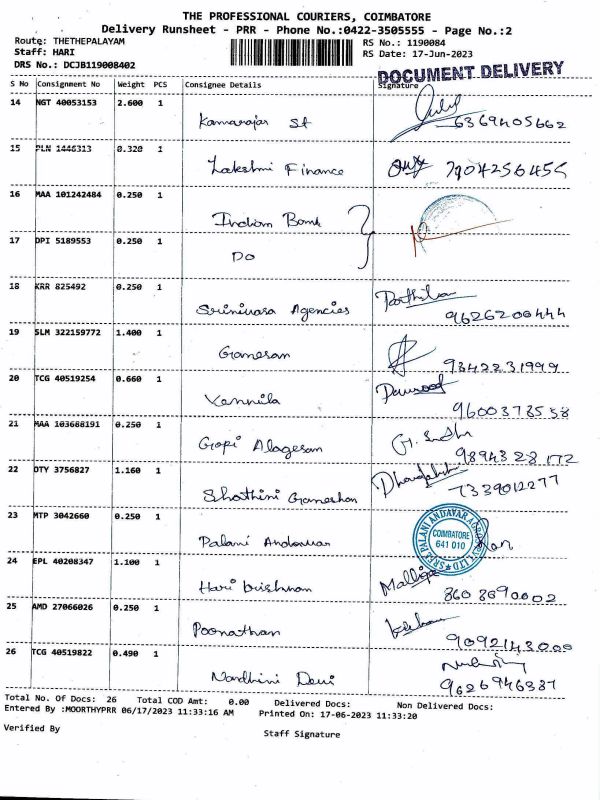 THE PROFESSIONAL COURIERS, COIMBATORE
Delivery Runsheet - PRR - Phone No.:0422-3505555 - Page No.:2
Route: THETHEPALAYAM RS No.: 1190084
Staff: HARI RS Date: 17-Jun-2023
DRS No.: DCJB119008402
DOCUMENT DELIVERY
S No Consignment No Weight PCS Consignee Details Signature
14 NGT 40053153 2.600 1 Kamarajar St 6369405662
15 PLN 1446313 0.320 1 Lakshmi Finance 7904256455
16 MAA 101242484 0.250 1 Indian Bank
17 DPI 5189553 0.250 1 DO
18 KRR 825492 0.250 1 Srinivasa Agencies Parthiban
9626200444
19 SLM 322159772 1.400 1 Ganesan 9342231999
20 TCG 40519254 0.660 1 Vennila
9600373558
21 MAA 103688191 0.250 1 Gopi Alagesan G. Sudha
9894328172
22 OTY 3756827 1.160 1 Shathini Ganeshan
7339012277
23 MTP 3042660 0.250 1 Palani Andavar
COIMBATORE
641 010
24 EPL 40208347 1.100 1 Hari krishnan Malliga
8608690002
25 AMD 27066026 0.250 1 Poonathan
9092143000
26 TCG 40519822 0.490 1 Nandhini Devi
9626946387
Total No. Of Docs: 26 Total COD Amt: 0.00 Delivered Docs: Non Delivered Docs:
Entered By :MOORTHYPRR 06/17/2023 11:33:16 AM Printed On: 17-06-2023 11:33:20
Verified By Staff Signature